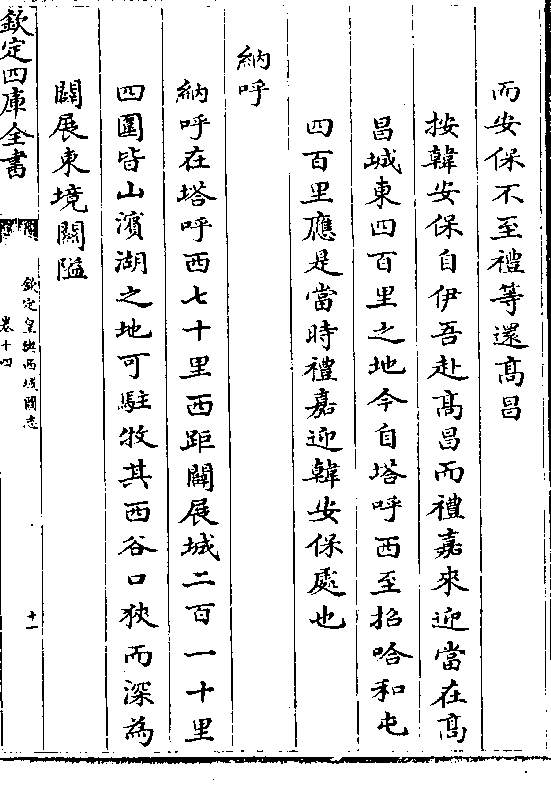 而安保不至禮等還髙昌
按韓安保自伊吾赴髙昌而禮嘉來迎當在髙
昌城東四百里之地今自塔呼西至招哈和屯
四百里應是當時禮嘉迎韓安保處也
納呼
納呼在塔呼西七十里西距闢展城二百一十里
四圍皆山濱湖之地可駐牧其西谷口狹而深為
闢展東境關隘
欽定四庫全書
欽定皇輿西域圖志
卷十四
十一